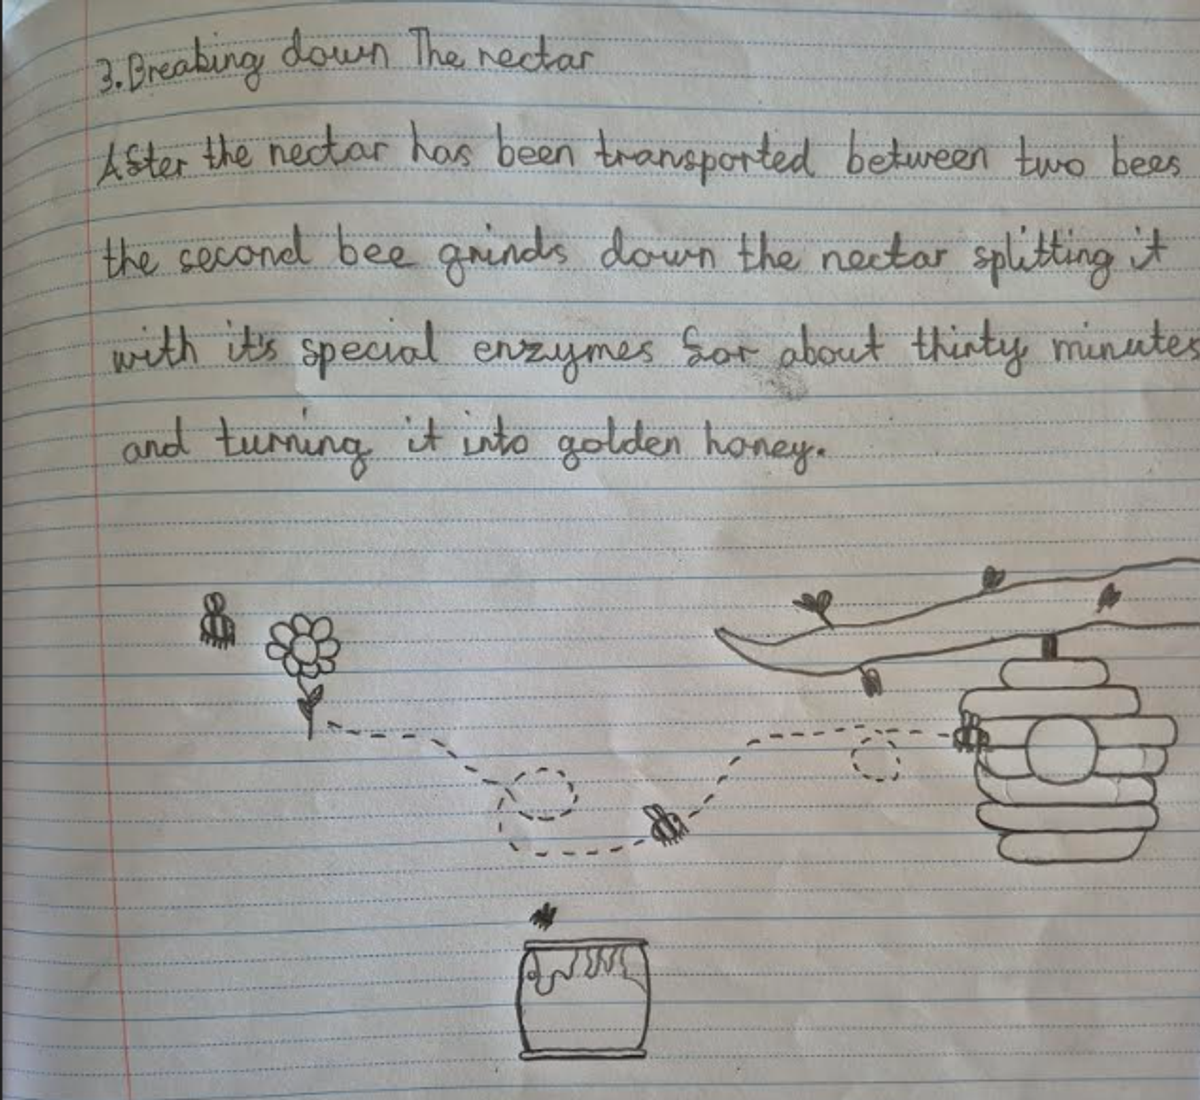 3. Breaking down The nectar
After the nectar has been transported between two bees
the second bee grinds down the nectar splitting it
with it's special enzymes for about thirty minutes
and turning it into golden honey.